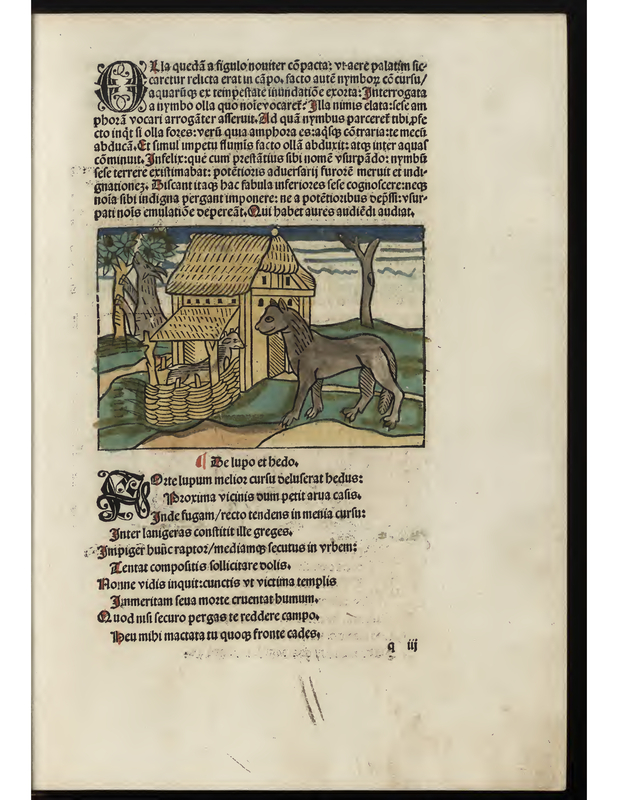 OLla quedã a figulo nouiter cõpacta: vt aere palatim sic-
caretur relicta erat in cãpo. facto autẽ nymboꝝ cõ cursu/
aquarũqꝫ ex tempestate inundatiõe exorta: Interrogata
a nymbo olla quo noĩe vocaret᷑: Illa nimis elata: sese am
phorã vocari arrogãter asseruit. Ad quã nymbus parceret᷑ tibi, ꝓfe
cto inq̃t si olla fores: verũ quia amphora es: aq̃sqꝫ cõtraria: te mecũ
abducã. Et simul impetu flumis facto ollã abduxit: atqꝫ inter aquas
cõminuit. Infelix: que cum prestãtius sibi nomẽ vsurpãdo: nymbũ
sese terrere existimabat: potẽtioris aduersarij furorẽ meruit et indi-
gnationeꝫ. Discant itaqꝫ hac fabula inferiores sese cognoscere: neqꝫ
noĩa sibi indigna pergant imponere: ne a potẽtioribus dep̃ssi: vsur-
pati nois emulatiõe depereãt. Qui habet aures audiẽdi audiat.
¶ De lupo et hedo.
FOrte lupum melior cursu deluserat hedus:
Proxima vicinis dum petit arua casis.
Inde fugam/recto tendens in menia cursu:
Inter lanigeras constitit ille greges.
Impiger hũnc raptor/mediamqꝫ secutus in vrbem:
Tentat compositis sollicitare dolis.
Nonne vides inquit: cunctis vt victima templis
Immeritam seua morte cruentat humum.
Quod nisi securo pergas te reddere campo.
Heu mihi mactata tu quoqꝫ fronte cades.
q iij